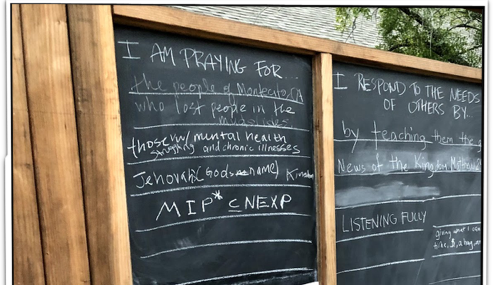 I AM PRAYING FOR...
the people of Montecito, CA
who lost people in the
mudslides
those w/ mental health
struggling and chronic illnesses
Jehovah (God's name)
MIP* CNEXP
I RESPOND TO THE NEEDS
OF OTHERS BY...
by teaching them the
News of the Kingdom
LISTENING FULLY
giving what I can